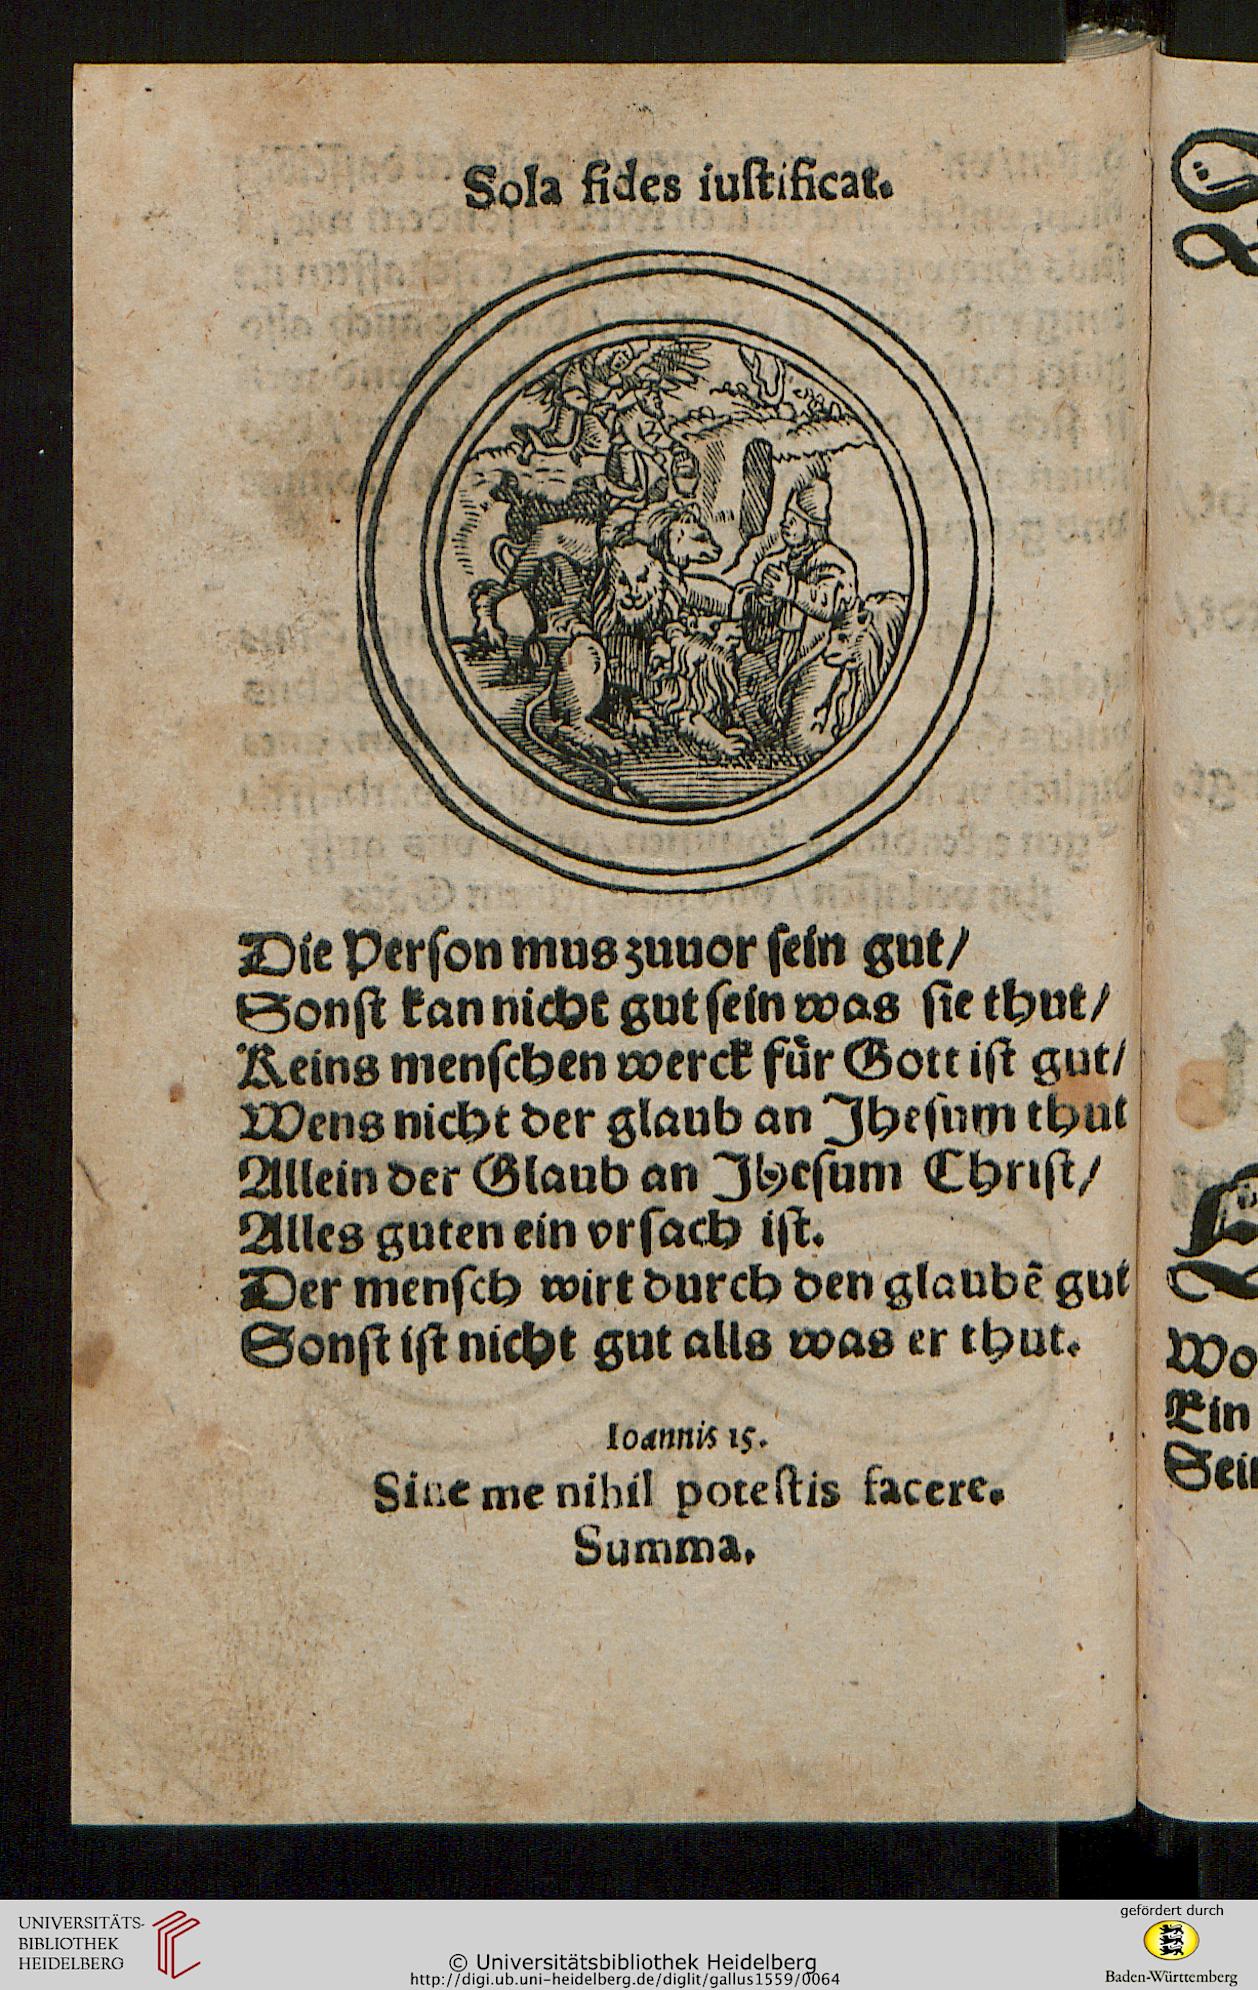 Sola fides iuſtificat.
Die Perſon mus zuuor ſein gut/
Sonſt kan nicht gut ſein was ſie thut/
Keins menſchen werck fuͤr Gott iſt gut/
Wens nicht der glaub an Jheſum thut
Allein der Glaub an Jheſum Chriſt/
Alles guten ein vrſach iſt.
Der menſch wirt durch den glaubē gut
Sonſt iſt nicht gut alls was er thut.
Ioannis 15.
Sine me nihil poteſtis facere.
Summa.
Wo
Ein
UNIVERSITÄTS-
BIBLIOTHEK
HEIDELBERG
© Universitätsbibliothek Heidelberg
http://digi.ub.uni-heidelberg.de/diglit/gallus1559/0064
gefördert durch
Baden-Württemberg